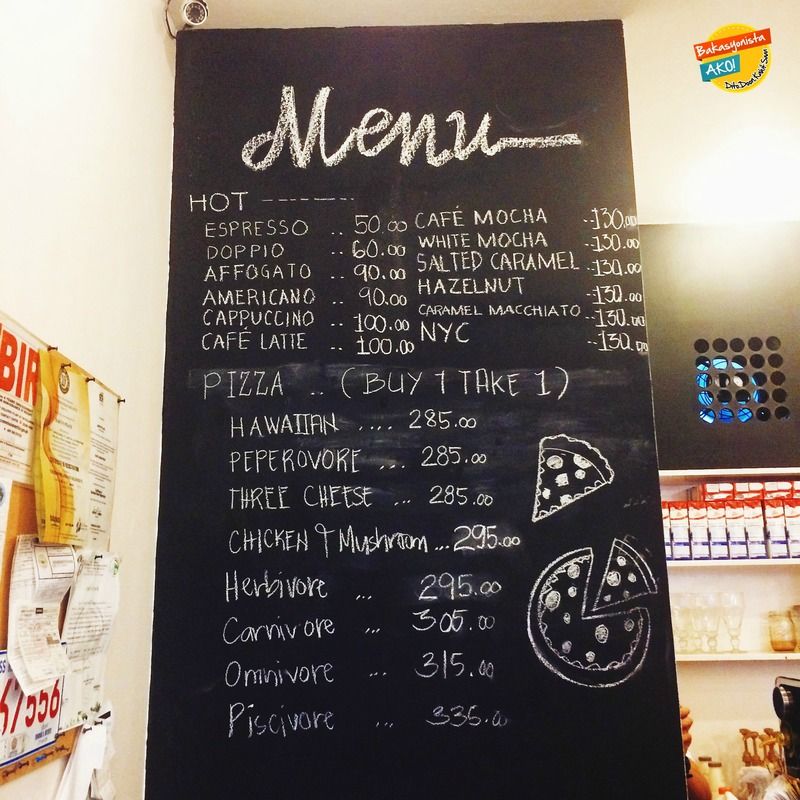 Bakasyonista
AKO!
Menu
HOT -------
ESPRESSO .. 50.00
DOPPIO .. 60.00
AFFOGATO .. 90.00
AMERICANO .. 90.00
CAPPUCCINO .. 100.00
CAFÉ LATTE .. 100.00
CAFÉ MOCHA ..130.00
WHITE MOCHA ..130.00
SALTED CARAMEL ..130.00
HAZELNUT ..130.00
CARAMEL MACCHIATO ..130.00
NYC ..130.00
PIZZA .. (BUY 1 TAKE 1)
HAWAIIAN .... 285.00
PEPEROVORE ... 285.00
THREE CHEESE ... 285.00
CHICKEN & Mushroom ... 295.00
Herbivore ... 295.00
Carnivore ... 305.00
Omnivore ... 315.00
Piscivore ... 335.00
BIR